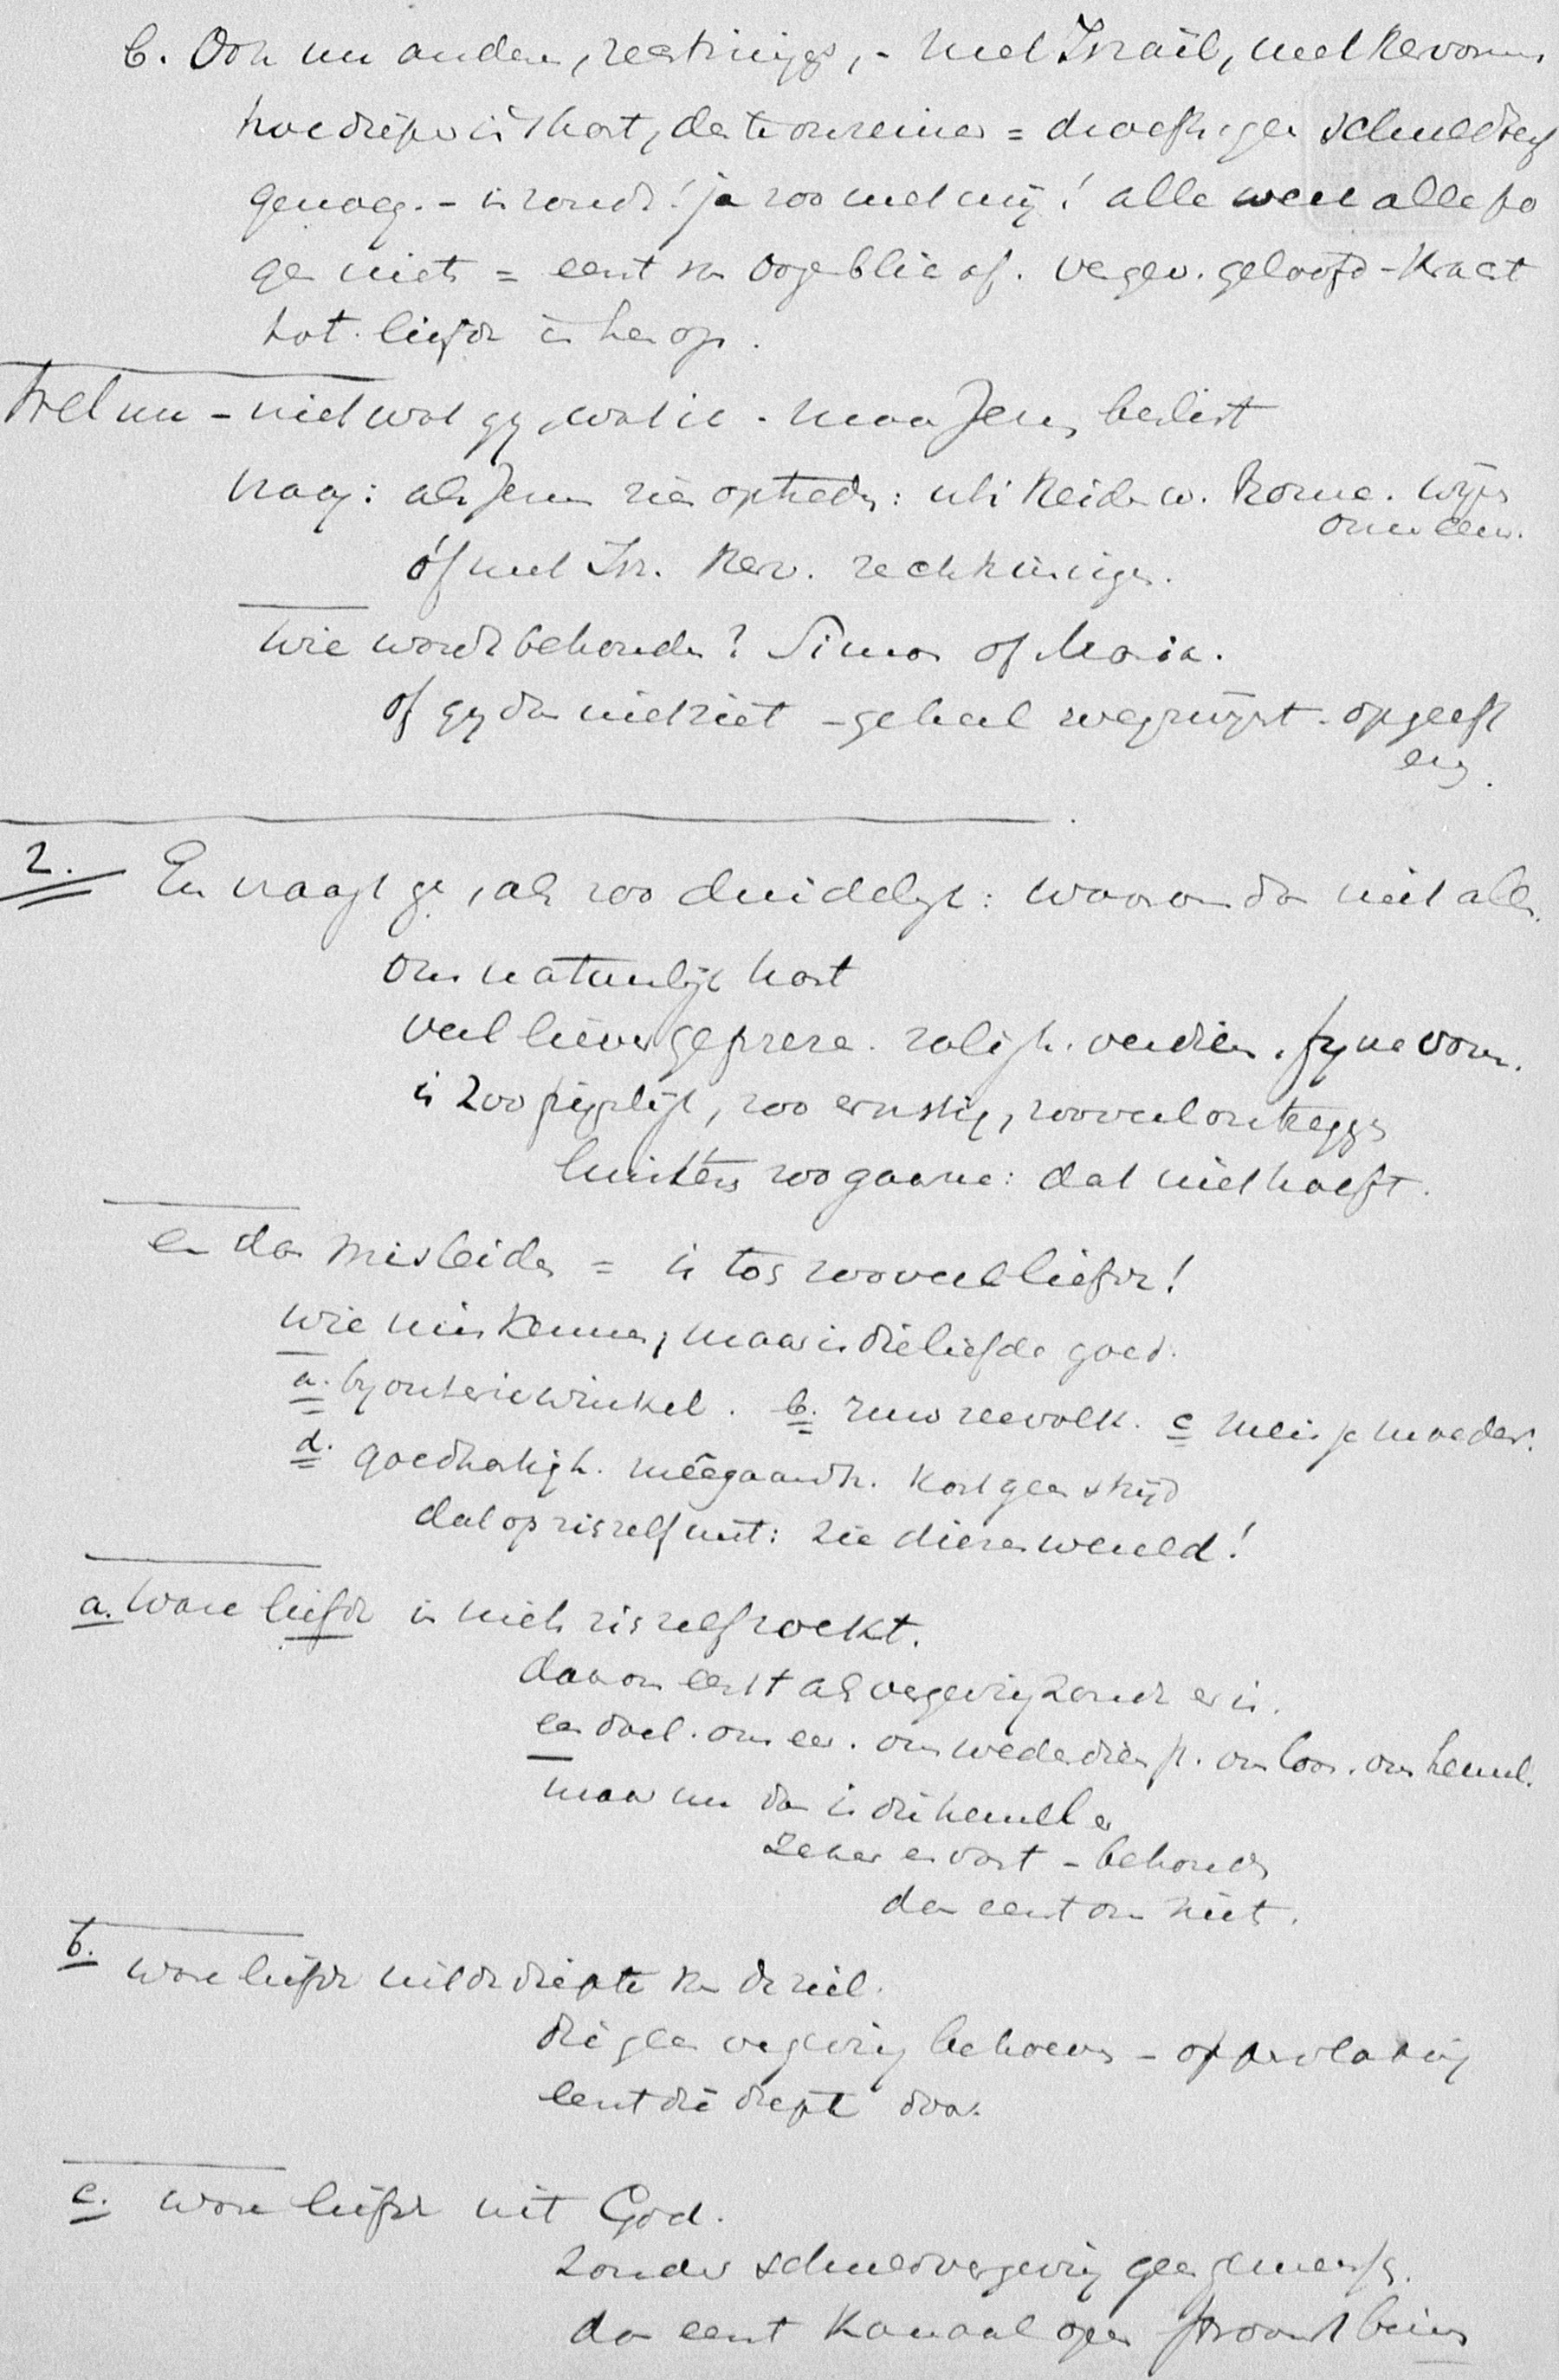 b. Ook nu anderen, rechtzinnigs, - met Israël, met Hervorm.
hoe dieper in 't hart, des te onreiner = droefheid geen schuldbesef
genoeg. - is zonde! ja zoo met mij! alle
gen niets = eerst van oogenblik af. vergev. geloofd - kracht
tot. liefde in hen op.
Wel nu - niet wat gij, wat ik - maar Jezus beslist
vraag: als Jezus hier optreden: uit Heiden w. Rome. wijs
onw eeuw.
óf met Isr. Herv. rechtzinnigen.
wie wordt behouden? Simon of Maria.
of gij dan niet ziet - geheel wegwerpt - opgeeft
enz.
2. En vraagt ge, als zoo duidelijk: waarom dan niet allen.
Ons natuurlijk hart
veel liever geprezen. zaligh. verdien. fijne vorm.
is zoo pijnlijk, zoo ernstig, zooveel omtreggs
luistert zoo gaarne: dat niet hoeft.
en dan misleiden = is tog zooveel liefde!
wie min kennen, maar in die liefde goed.
a. bijouteriewinkel. b. ruw zeevolk. c meisje moeder.
d. goedhartigh. meêgaandh. kost geen strijd
dat op zig zelf niet: zie dierenwereld!
a. Ware liefde is niets zig zelf zoekt.
daarom eerst als vergeving zonde er is.
een doel. om eer. om wederdienst. om loon. om hemel.
maar nu dan is die hemel er
zeker en vast - behouden
dan eerst om niet.
b. ware liefde uit de diepte van de ziel.
die geen vergeving behoeven - oppervlakkig
eerst die diepte door.
c. ware liefde uit God.
Zonder schuldvergeving geen gemeensch.
dan eerst kanaal open stroomt binnen